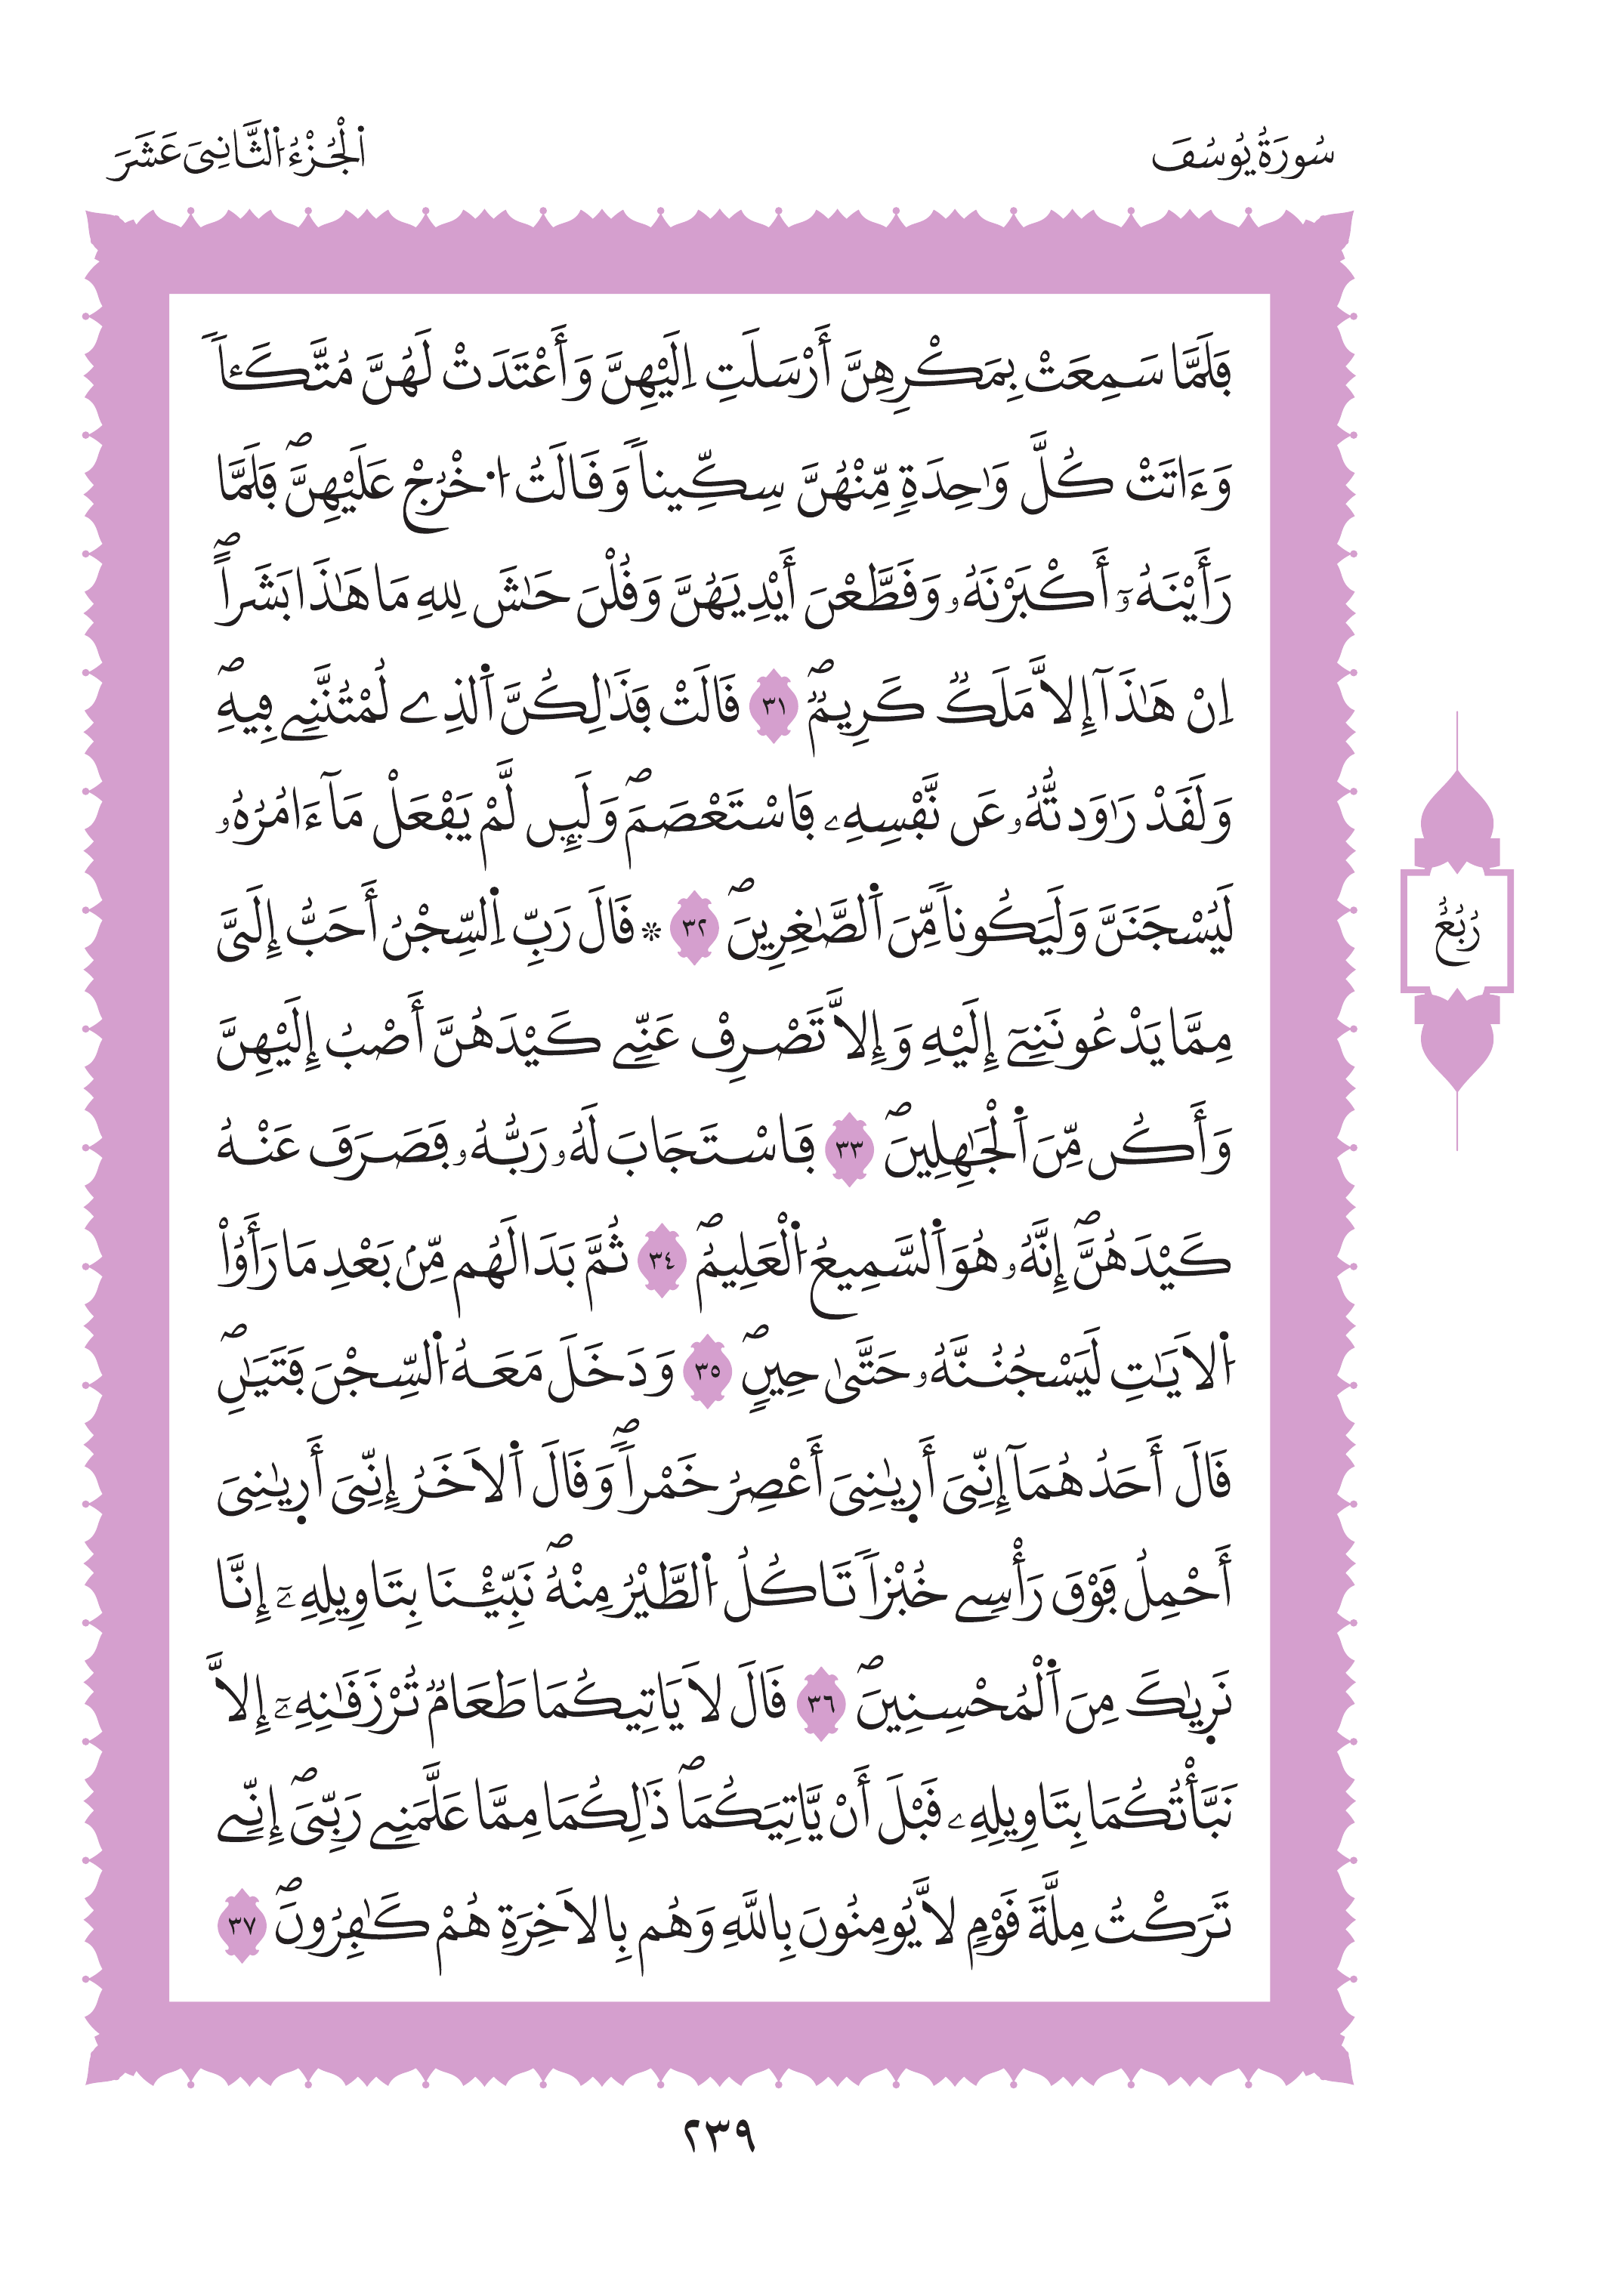 سُورَةُ يُوسُفَ
اَ۬لْجُزْءُ اُ۬لثَّانِيَ عَشَرَ
فَلَمَّا سَمِعَتْ بِمَكْرِهِنَّ أَرْسَلَتِ اِلَيْهِنَّ وَأَعْتَدَتْ لَهُنَّ مُتَّكَـٔاٗ
وَءَاتَتْ كُلَّ وَٰحِدَةٖ مِّنْهُنَّ سِكِّيناٗ وَقَالَتُ اُ۟خْرُجْ عَلَيْهِنَّۖ فَلَمَّا
رَأَيْنَهُۥٓ أَكْبَرْنَهُۥ وَقَطَّعْنَ أَيْدِيَهُنَّ وَقُلْنَ حَٰشَ لِلهِ مَا هَٰذَا بَشَراًۖ
اِنْ هَٰذَآ إِلَّا مَلَكٞ كَرِيمٞۖ ٣١ قَالَتْ فَذَٰلِكُنَّ اَ۬لذِے لُمْتُنَّنِے فِيهِۖ
وَلَقَدْ رَٰوَدتُّهُۥ عَن نَّفْسِهِۦ فَاسْتَعْصَمَۖ وَلَئِن لَّمْ يَفْعَلْ مَآ ءَامُرُهُۥ
لَيُسْجَنَنَّ وَلَيَكُوناٗ مِّنَ اَ۬لصَّٰغِرِينَۖ ٣٢ ۞ قَالَ رَبِّ اِ۬لسِّجْنُ أَحَبُّ إِلَيَّ
مِمَّا يَدْعُونَنِےٓ إِلَيْهِ وَإِلَّا تَصْرِفْ عَنِّے كَيْدَهُنَّ أَصْبُ إِلَيْهِنَّ
وَأَكُن مِّنَ اَ۬لْجَٰهِلِينَۖ ٣٣ فَاسْتَجَابَ لَهُۥ رَبُّهُۥ فَصَرَفَ عَنْهُ
كَيْدَهُنَّۖ إِنَّهُۥ هُوَ اَ۬لسَّمِيعُ اُ۬لْعَلِيمُۖ ٣٤ ثُمَّ بَدَا لَهُم مِّنۢ بَعْدِ مَا رَأَوُاْ
اُ۬لَايَٰتِ لَيَسْجُنُنَّهُۥ حَتَّىٰ حِينٖۖ ٣٥ وَدَخَلَ مَعَهُ اُ۬لسِّجْنَ فَتَيَٰنِۖ
قَالَ أَحَدُهُمَآ إِنِّيَ أَر۪يٰنِيَ أَعْصِرُ خَمْراٗۖ وَقَالَ اَ۬لَاخَرُ إِنِّيَ أَر۪يٰنِيَ
أَحْمِلُ فَوْقَ رَأْسِے خُبْزاٗ تَاكُلُ اُ۬لطَّيْرُ مِنْهُۖ نَبِّئْنَا بِتَاوِيلِهِۦٓ إِنَّا
نَر۪يٰكَ مِنَ اَ۬لْمُحْسِنِينَۖ ٣٦ قَالَ لَا يَاتِيكُمَا طَعَامٞ تُرْزَقَٰنِهِۦٓ إِلَّا
نَبَّأْتُكُمَا بِتَاوِيلِهِۦ قَبْلَ أَنْ يَّاتِيَكُمَاۖ ذَٰلِكُمَا مِمَّا عَلَّمَنِے رَبِّيَۖ إِنِّے
تَرَكْتُ مِلَّةَ قَوْمٖ لَّا يُومِنُونَ بِاللَّهِ وَهُم بِالَاخِرَةِ هُمْ كَٰفِرُونَۖ ٣٧
رُبُعُ
٢٣٩